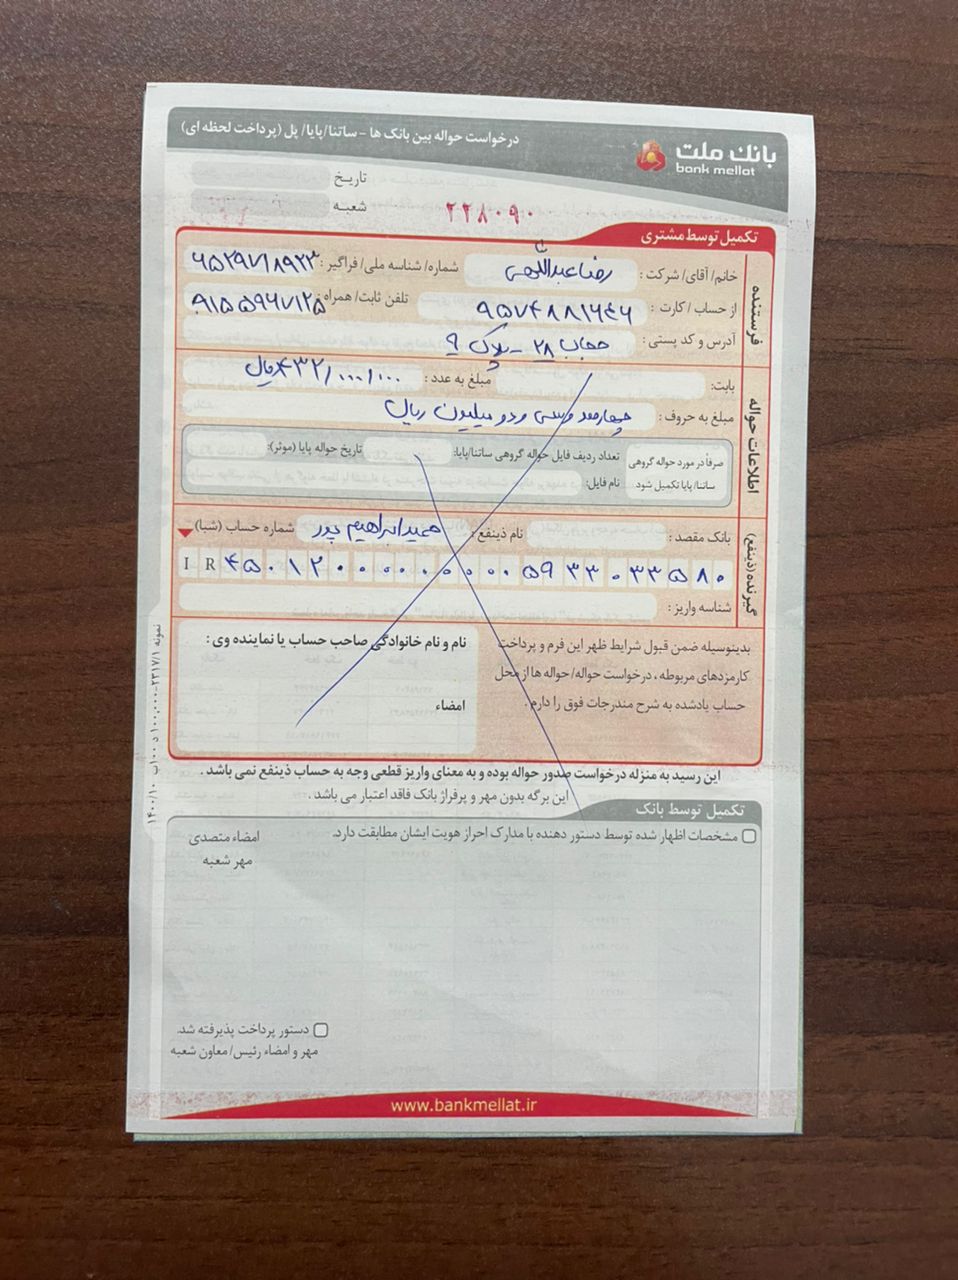 بانک ملت
bank mellat
درخواست حواله بین بانک ها - ساتنا/پایا/ پل (پرداخت لحظه ای)
تاریخ
شعبه
۲۲۸۰۹۰
تکمیل توسط مشتری
فرستنده
خانم/ آقای/ شرکت : رضا عبداللهی شماره/ شناسه ملی/ فراگیر : ۶۵۲۹۷۱۸۹۲۳
از حساب / کارت : ۹۵۷۴۸۸۱۶۴۶ تلفن ثابت/ همراه : ۰۹۱۵۵۹۶۷۱۲۵
آدرس و کد پستی : حجاب ۲۸ - پلاک ۹
اطلاعات حواله
بابت: مبلغ به عدد : ۴۳۲/۰۰۰/۰۰۰ ریال
مبلغ به حروف : چهارصد و سی و دو میلیون ریال
صرفاً در مورد حواله گروهی ساتنا/ پایا تکمیل شود. تعداد ردیف فایل حواله گروهی ساتنا/پایا: تاریخ حواله پایا (موثر):
نام فایل:
گیرنده (ذینفع)
بانک مقصد : نام ذینفع : حمید ابراهیم پور شماره حساب (شبا) :
IR ۴۵۰۱۲۰۰۰۰۰۰۰۰۰۵۹۳۳۰۳۳۵۸۰
شناسه واریز :
بدینوسیله ضمن قبول شرایط ظهر این فرم و پرداخت
کارمزدهای مربوطه ، درخواست حواله/ حواله ها از محل
حساب یادشده به شرح مندرجات فوق را دارم .
نام و نام خانوادگی صاحب حساب یا نماینده وی :
امضاء
این رسید به منزله درخواست صدور حواله بوده و به معنای واریز قطعی وجه به حساب ذینفع نمی باشد .
این برگه بدون مهر و پرفراژ بانک فاقد اعتبار می باشد .
تکمیل توسط بانک
مشخصات اظهار شده توسط دستور دهنده با مدارک احراز هویت ایشان مطابقت دارد.
امضاء متصدی
مهر شعبه
دستور پرداخت پذیرفته شد.
مهر و امضاء رئیس/ معاون شعبه
www.bankmellat.ir